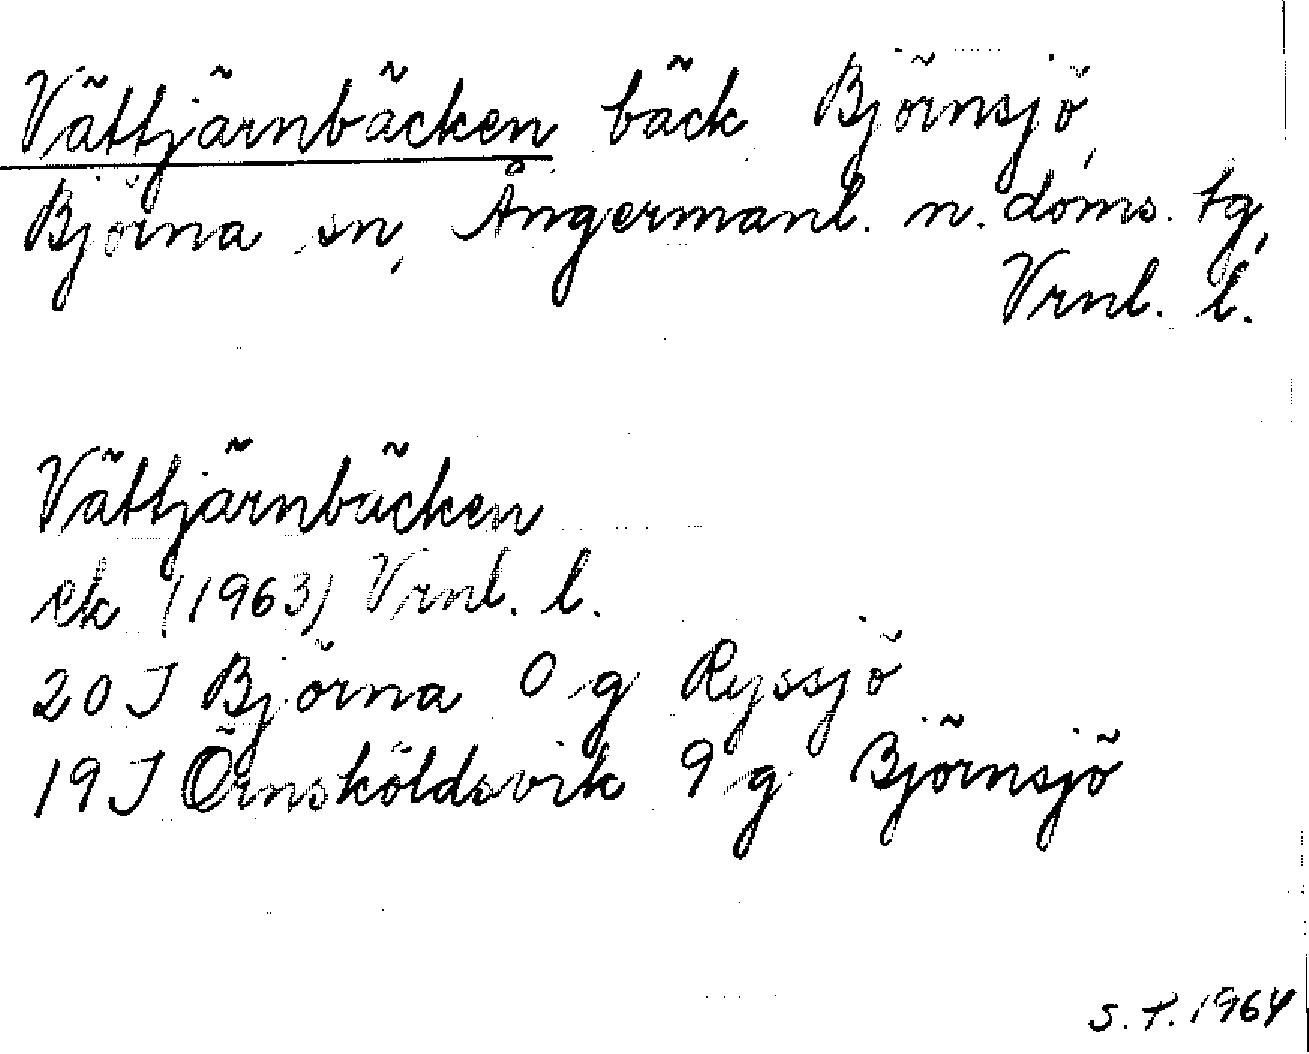 Vättjärnbäcken bäck Björnsjö,
Björna sn, Ångermanl. n. doms. tg,
Vrnl. l.
Vättjärnbäcken
ek (1963) Vrnl. l.
20 J Björna 0 g Ryssjö
19 J Örnsköldsvik 9 g Björnsjö
S.T. 1964